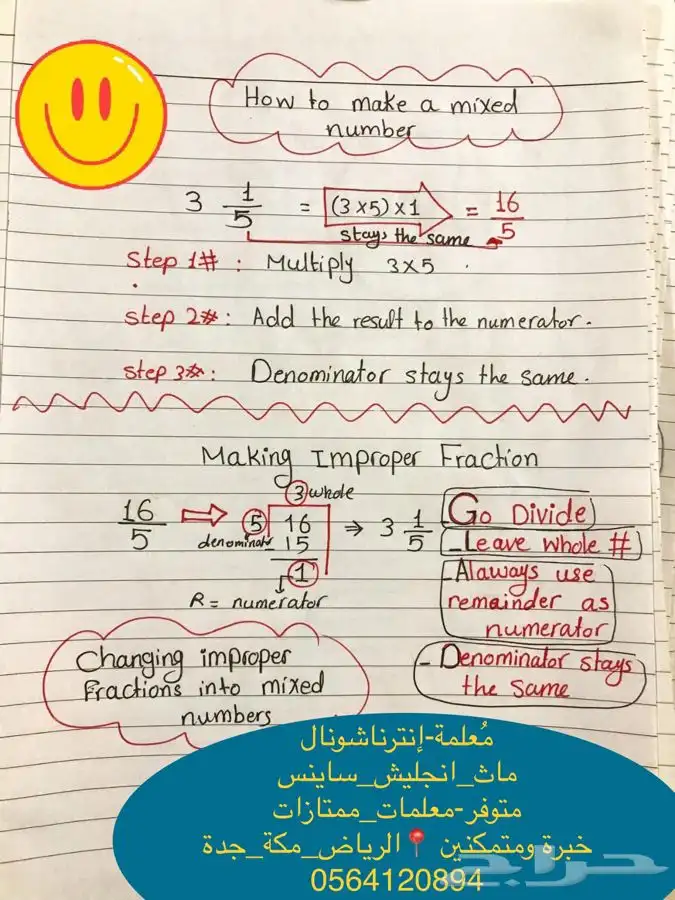 How to make a mixed
number
3 1/5 = (3×5)×1 = 16/5
stays the same
Step 1# : Multiply 3×5 .
step 2# : Add the result to the numerator.
step 3# : Denominator stays the same.
Making Improper Fraction
3 whole
16/5 ⇒ 5 16 ⇒ 3 1/5
denominator - 15
1
R = numerator
- Go Divide
- Leave whole #
- Alaways use
remainder as
numerator
- Denominator stays
the same
Changing improper
Fractions into mixed
numbers
مُعلمة-إنترناشونال
ماث_انجليش_ساينس
متوفر-معلمات_ممتازات
خبرة ومتمكنين 📍الرياض_مكة_جدة
0564120894
حراج